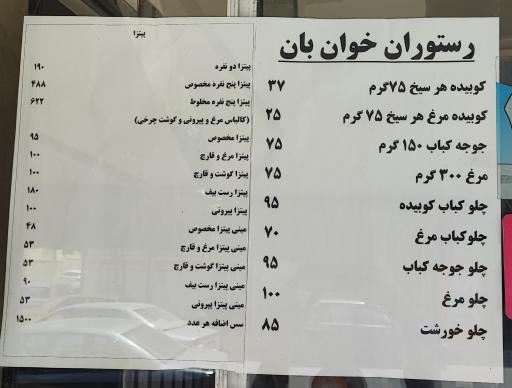 رستوران خوان بان
کوبیده هر سیخ ۷۵گرم ۳۷
کوبیده مرغ هر سیخ ۷۵ گرم ۲۵
جوجه کباب ۱۵۰ گرم ۷۵
مرغ ۳۰۰ گرم ۷۵
چلو کباب کوبیده ۹۵
چلوکباب مرغ ۷۰
چلو جوجه کباب ۹۵
چلو مرغ ۱۰۰
چلو خورشت ۸۵
پیتزا
پیتزا دو نفره ۱۹۰
پیتزا پنج نفره مخصوص ۴۸۸
پیتزا پنج نفره مخلوط ۶۲۲
(کالباس مرغ و پپرونی و گوشت چرخی)
پیتزا مخصوص ۹۵
پیتزا مرغ و قارچ ۱۰۰
پیتزا گوشت و قارچ ۱۰۰
پیتزا رست بیف ۱۸۰
پیتزا پپرونی ۱۰۰
مینی پیتزا مخصوص ۴۸
مینی پیتزا مرغ و قارچ ۵۳
مینی پیتزا گوشت و قارچ ۵۳
مینی پیتزا رست بیف ۹۰
مینی پیتزا پپرونی ۵۳
سس اضافه هر عدد ۱۵۰۰